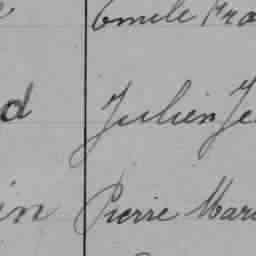 Emile Fra
d Julien Je
in Pierre Mari